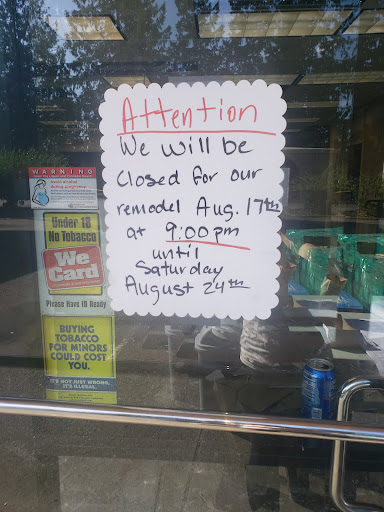 Attention
We will be
Closed for our
remodel Aug. 17th
at 9:00pm
until
Saturday
August 24th
WARNING
Avoid alcohol
during pregnancy
Under 18
No Tobacco
We
Card
Please Have ID Ready
BUYING
TOBACCO
FOR MINORS
COULD COST
YOU.
IT'S NOT JUST WRONG.
IT'S ILLEGAL.